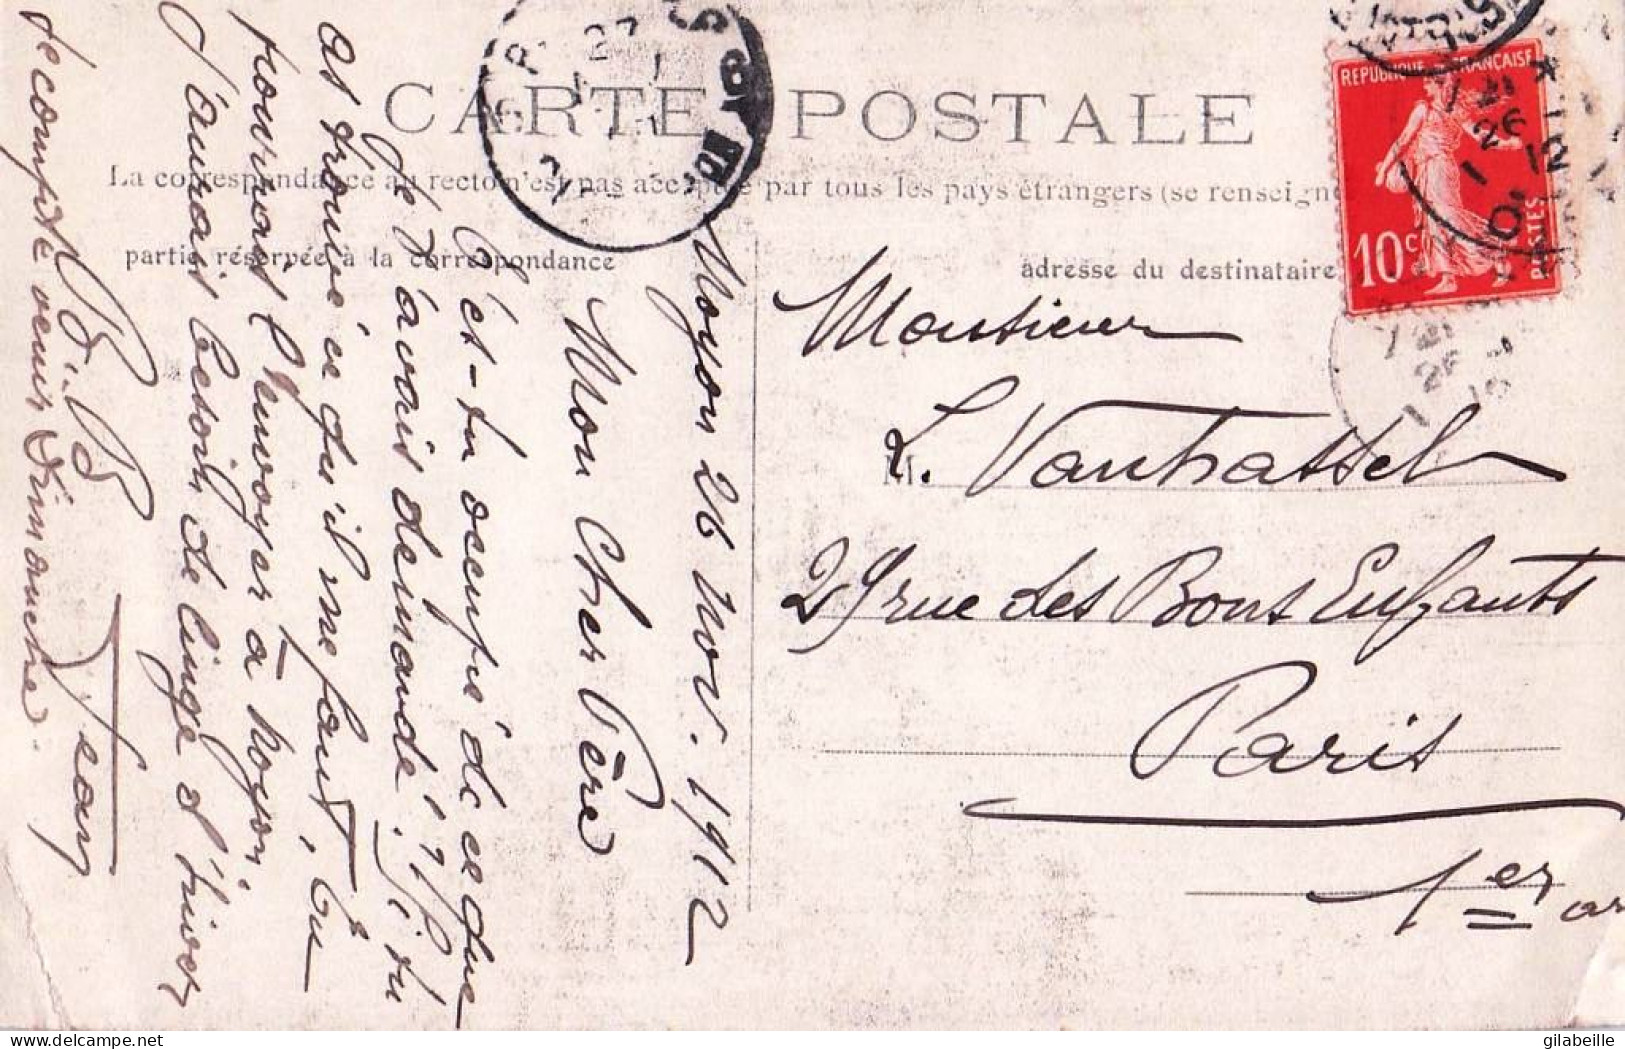 CARTE POSTALE
La correspondance au recto n'est pas acceptée par tous les pays étrangers (se renseigne
partie réservée à la correspondance
adresse du destinataire
REPUBLIQUE FRANÇAISE
10c
POSTES
Monsieur
L. Vanhassel
29 rue des Bons Enfants
Paris
1er ar
Noyon 26 Nov. 1912
Mon Cher Père
T'es-tu occupé de ce que
je t'avais demandé? Si tu
as trouvé ce qu'il me faut, tu
pourrais l'envoyer à Noyon,
J'aurais besoin de linge d'hiver
Je compte venir Dimanche.
Jean
gilabeille